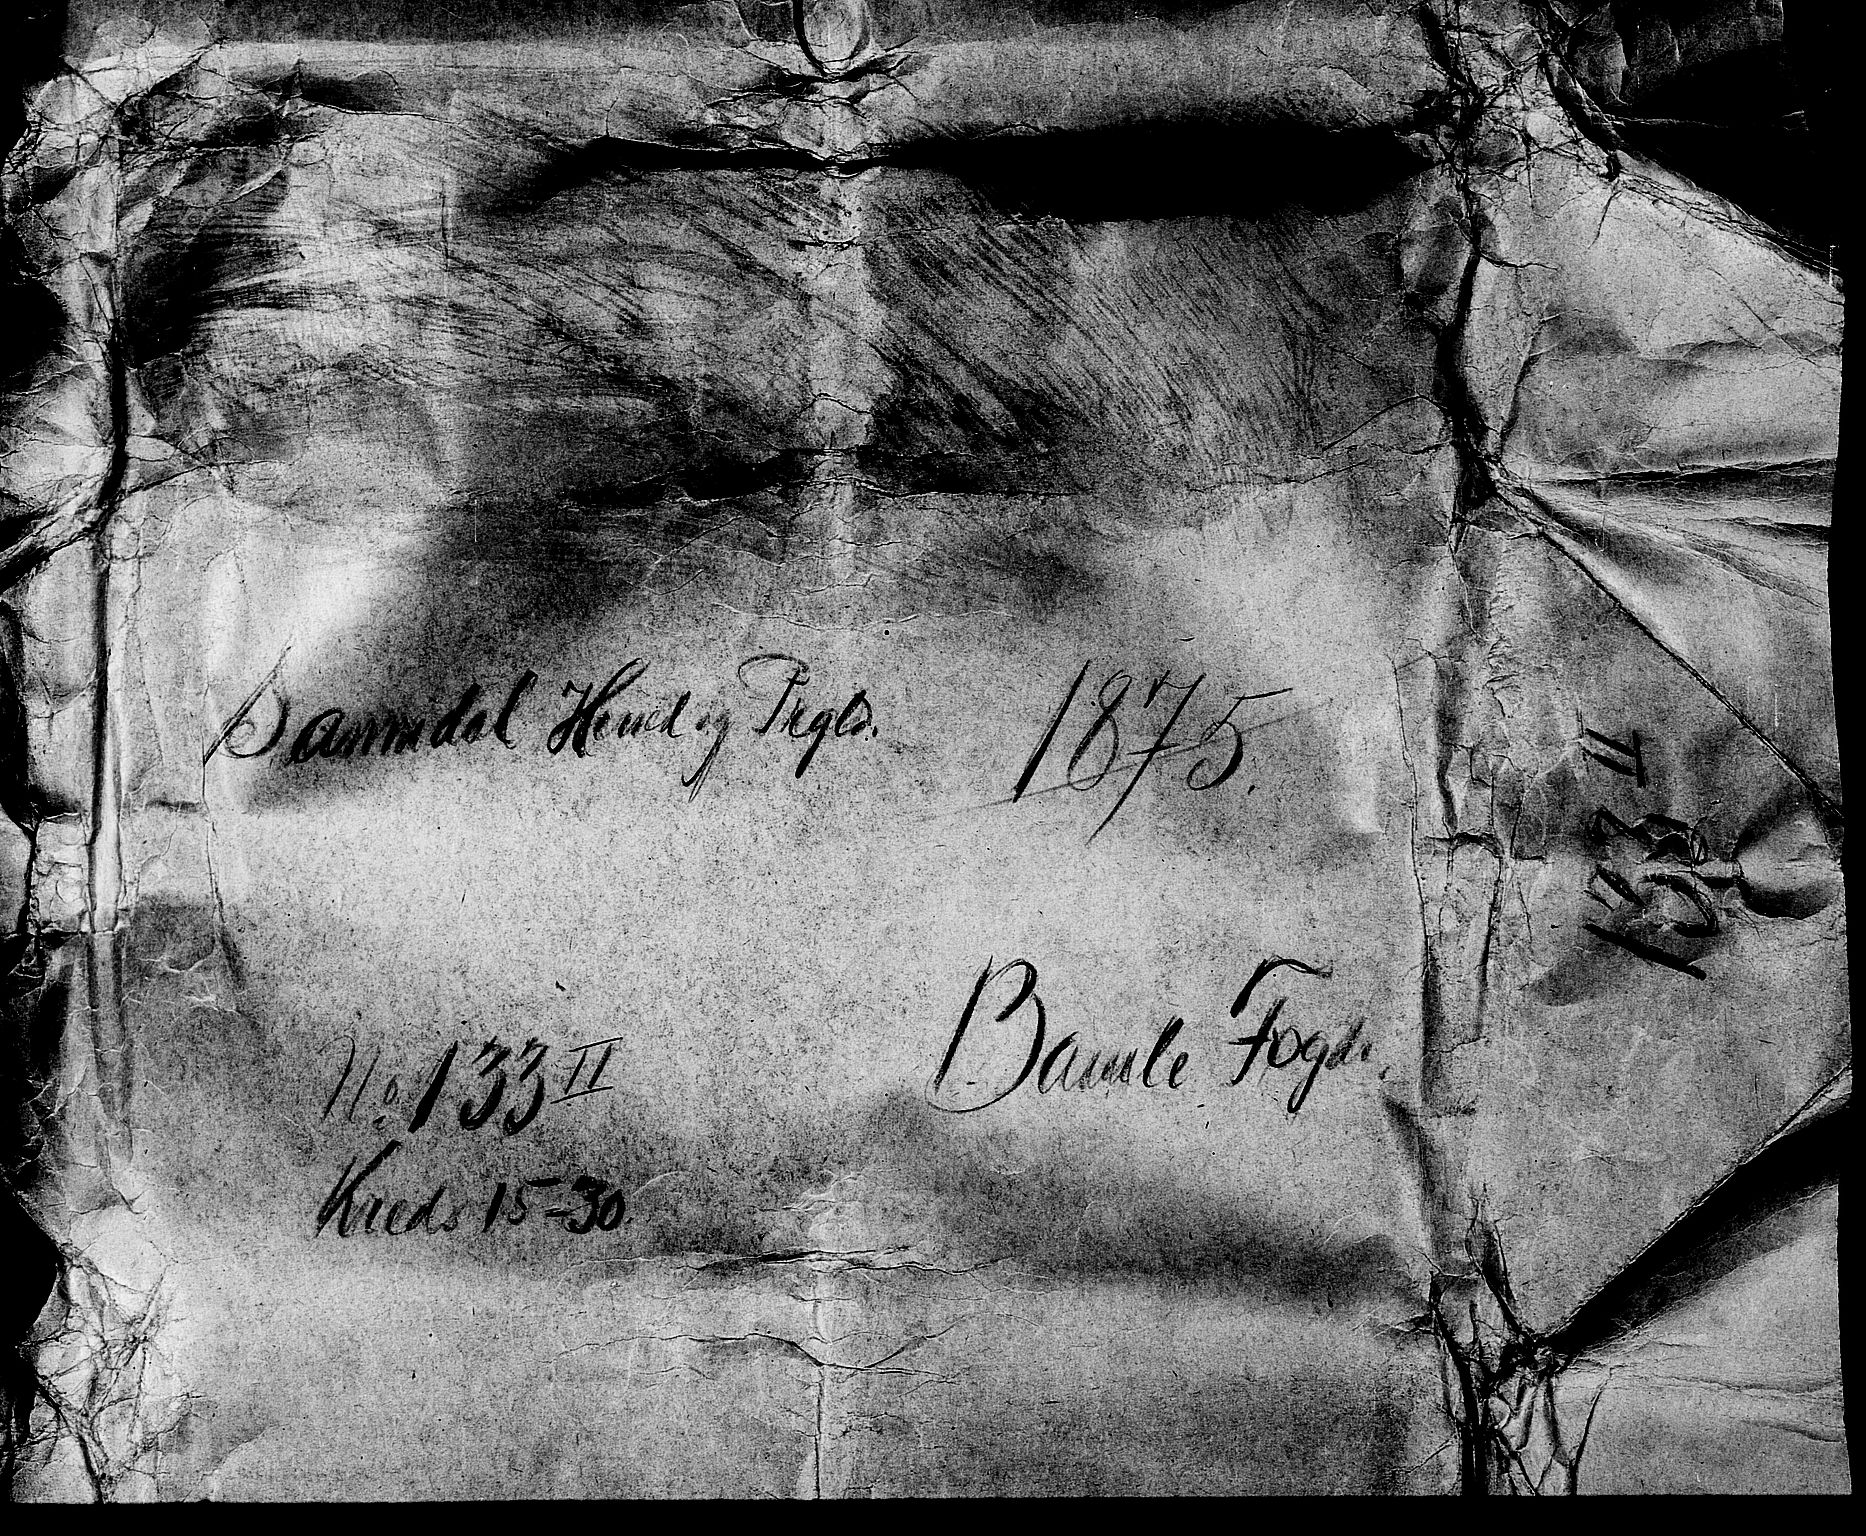 Sannidal Herred og Prgld. 1875.
No. 133 II
Bamle Fogdi.
Kreds 15-30.
133 II